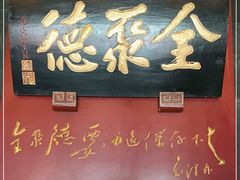 全聚德
全聚德要永远保存下去
毛泽东